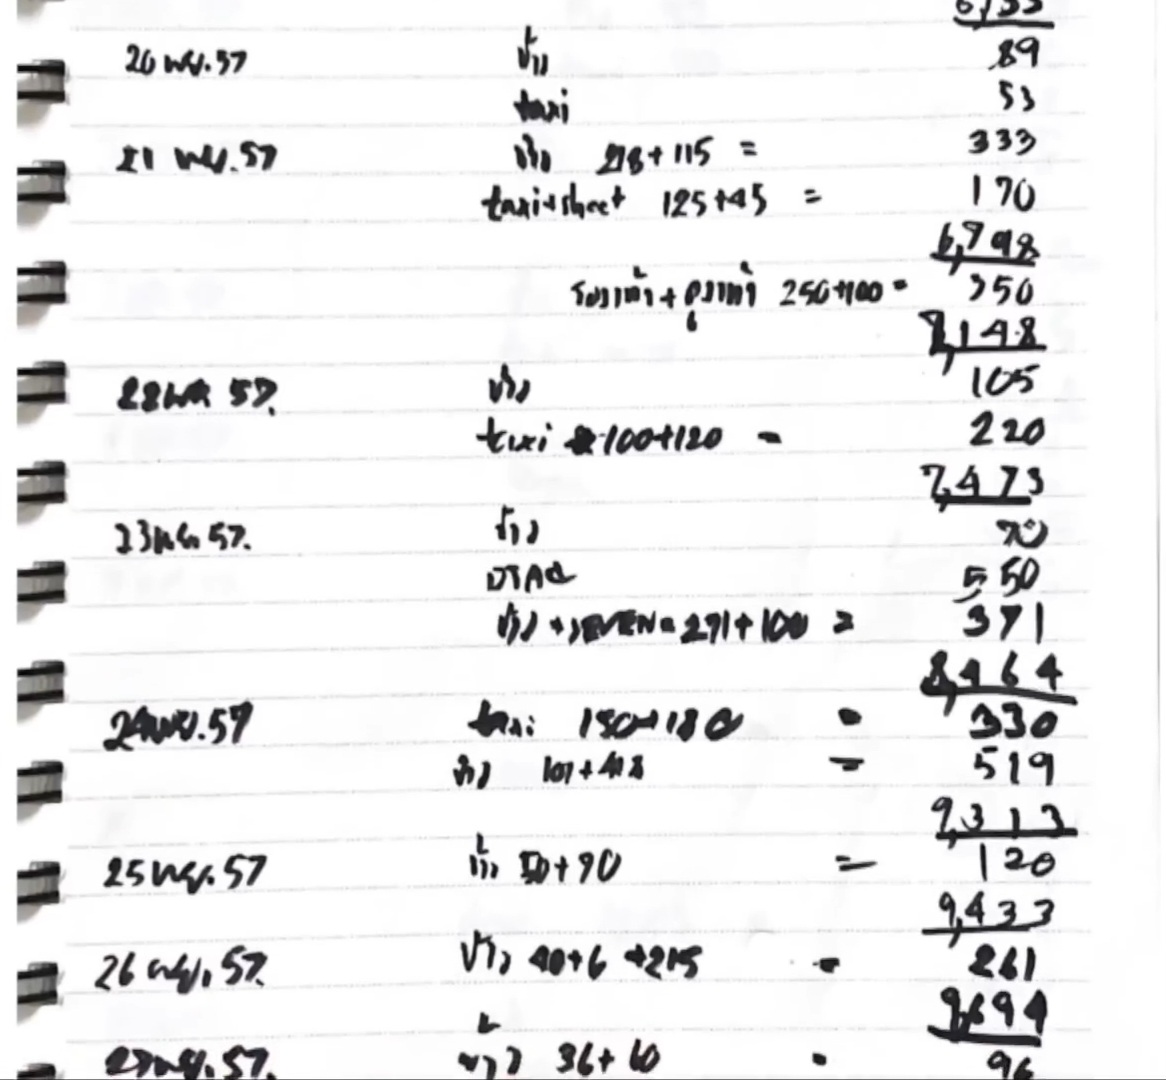 6,153
20 พย. 57 ข้าว 89
taxi 53
21 พย. 57 ข้าว 218+115 = 333
taxi+sheet 125+45 = 170
6,798
รองเท้า+ถุงเท้า 250+100= 350
7,148
22 พย 57. ข้าว 105
taxi 100+120 = 220
7,473
23 พย. 57. ข้าว 70
DTAC 550
ข้าว +SEVEN= 271+100 = 371
8,464
24 พย. 57 taxi 150+180 = 330
ข้าว 101+418 = 519
9,313
25 พย. 57 ข้าว 50+70 = 120
9,433
26 พย. 57. ข้าว 40+6+215 = 261
9,694
27 พย. 57. ข้าว 36+60 = 96